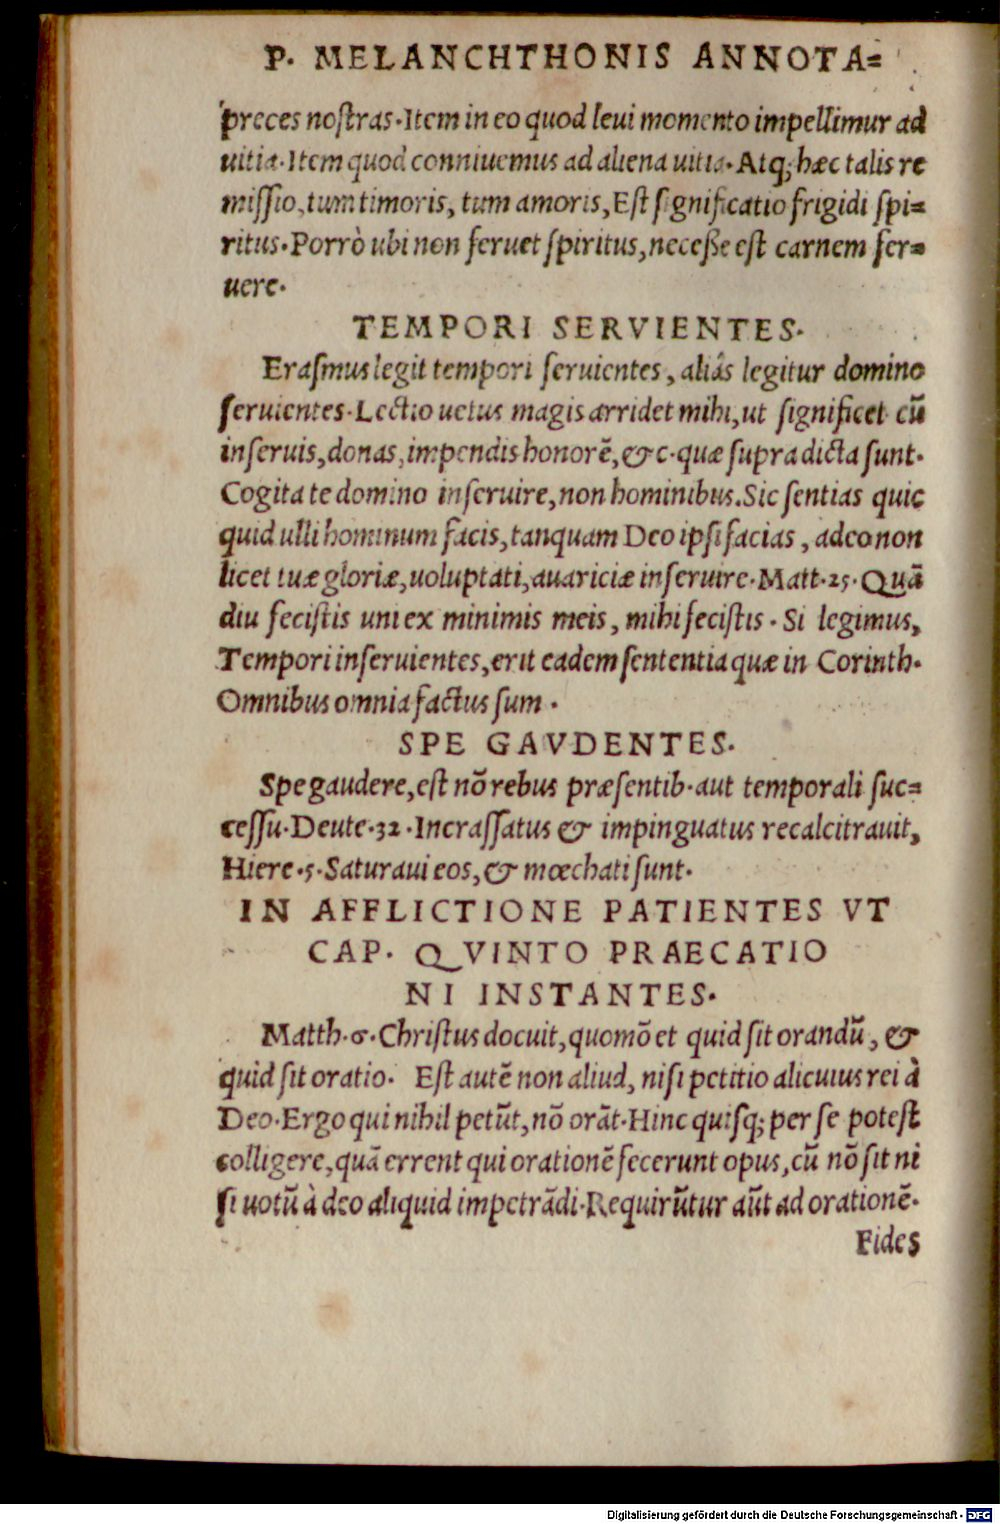 P. MELANCHTHONIS ANNOTA=
preces noſtras. Item in eo quod leui momento impellimur ad
uitia. Item quod conniuemus ad aliena uitia. Atq; hæc talis re
miſſio, tum timoris, tum amoris, Eſt ſignificatio frigidi ſpi=
ritus. Porrò ubi non feruet ſpiritus, neceße eſt carnem fer=
uere.
TEMPORI SERVIENTES.
Eraſmus legit tempori ſeruientes, aliâs legitur domino
ſeruientes. Lectio uetus magis arridet mihi, ut ſignificet cũ
inſeruis, donas, impendis honorẽ, &c. quæ ſupra dicta ſunt.
Cogita te domino inſeruire, non hominibus. Sic ſentias quic
quid ulli hominum facis, tanquam Deo ipſi facias, adeo non
licet tuæ gloriæ, uoluptati, auariciæ inſeruire. Matt. 25. Quã
diu feciſtis uni ex minimis meis, mihi feciſtis. Si legimus,
Tempori inſeruientes, erit eadem ſententia quæ in Corinth.
Omnibus omnia factus ſum.
SPE GAVDENTES.
Spe gaudere, eſt nõ rebus præſentib. aut temporali ſuc=
ceſſu. Deute. 32. Incraſſatus & impinguatus recalcitrauit,
Hiere. 5. Saturaui eos, & mœchati ſunt.
IN AFFLICTIONE PATIENTES VT
CAP. QVINTO PRAECATIO
NI INSTANTES.
Matth. 6. Chriſtus docuit, quomõ et quid ſit orandũ, &
quid ſit oratio. Eſt autẽ non aliud, niſi petitio alicuius rei à
Deo. Ergo qui nihil petũt, nõ orãt. Hinc quiſq; per ſe poteſt
colligere, quã errent qui orationẽ fecerunt opus, cũ nõ ſit ni
ſi uotũ à deo aliquid impetrãdi. Requirũtur aũt ad orationẽ.
Fides
Digitalisierung gefördert durch die Deutsche Forschungsgemeinschaft - DFG